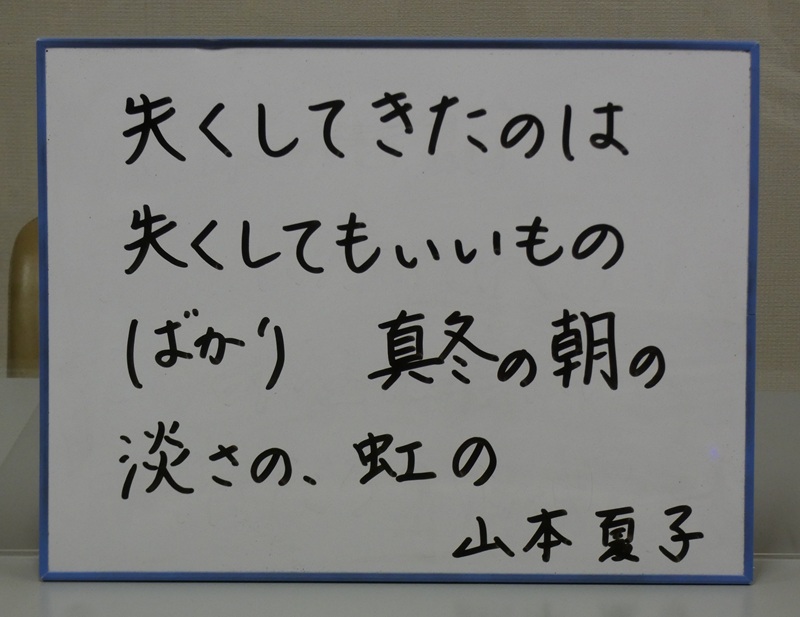 失くしてきたのは
失くしてもいいもの
ばかり　真冬の朝の
淡さの、虹の
山本夏子